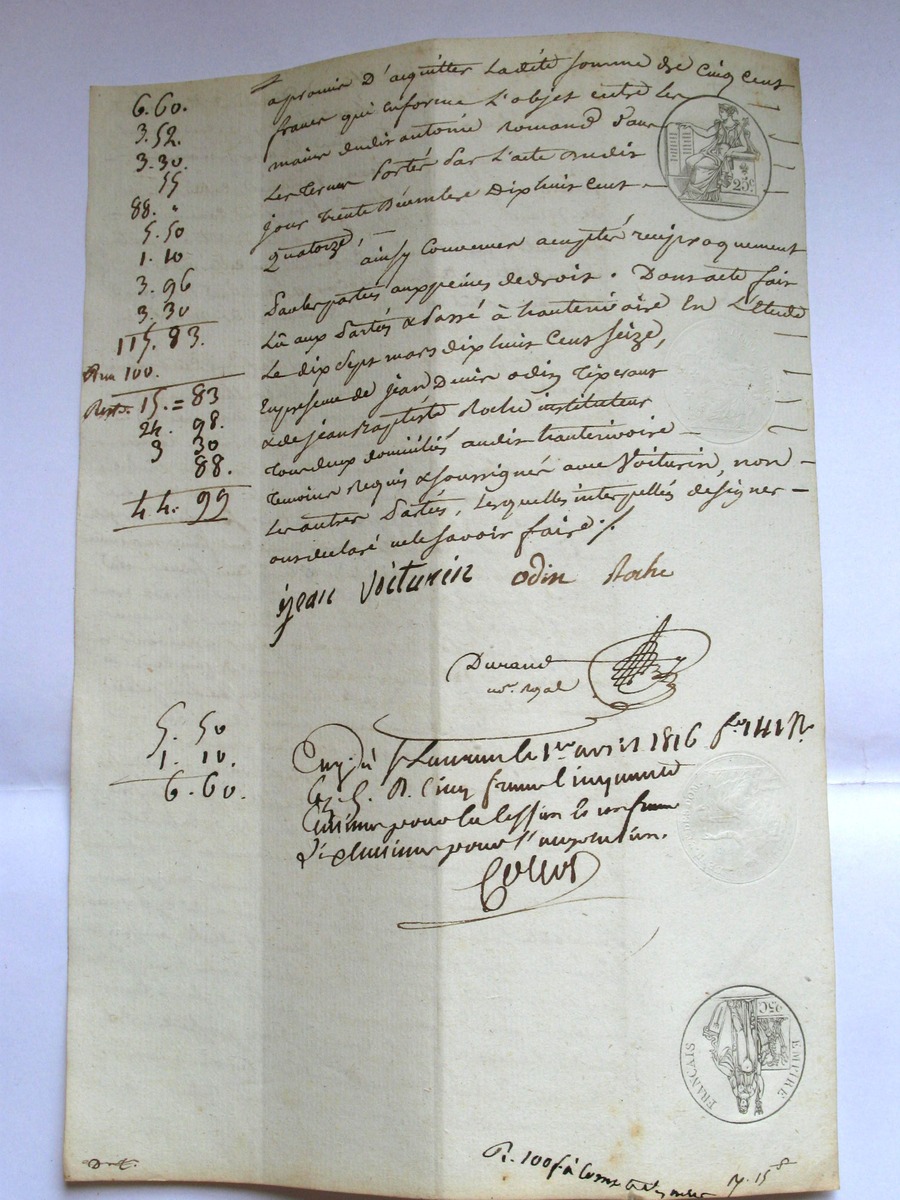 a promis d'acquitter ladite somme de cinq cent
francs qui en forme l'objet entre les
mains dudit antoine Romand dans
les termes portés par l'acte dudit
jour trente Décembre dix huit cent
quatorze,
ainsy convenu accepté réciproquement
par les parties aux peines de droit. Dont acte fait
Lû aux parties & passé à hauterivoire En L'étude
Le dix sept mars dix huit Cent Seize,
En présence de jean Denis odin
& de jean Baptiste Roche instituteur
tous deux domiciliés audit hauterivoire
témoins Requis & soussignés avec Voiturin, non
les autres parties, lesquelles interpellés de signer
ont déclaré ne le savoir faire ./.
jean Voiturin odin Roche
Durand
no.re Royal
Enr. à St Laurent le 1er avril 1816 fo 141 Ro
C. 5. R. cinq francs cinquante
centimes pour la cession & un franc
dix centimes pour l'acceptation.
6.60.
3.52.
3.30.
55
88. "
5.50
1.10
3.96
3.30
115.83.
Reçu 100.
Reste 15.=83
24. 98.
3 30
88.
44. 99
5. 50
1. 10.
6. 60.
25c
EMPIRE
FRANÇAIS
25C.
R. 100 f à